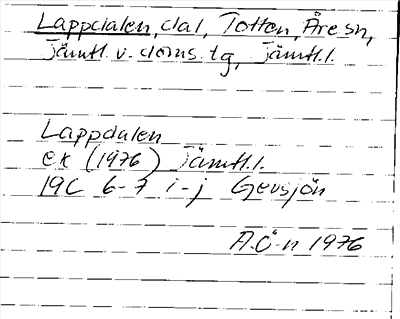 Lappdalen, dal, Totten, Åre sn,
Jämtl. v. doms. tg, Jämtl. l.
Lappdalen
ek (1976) Jämtl. l.
19C 6-7 i-j Gevsjön
A.Ö-n 1976